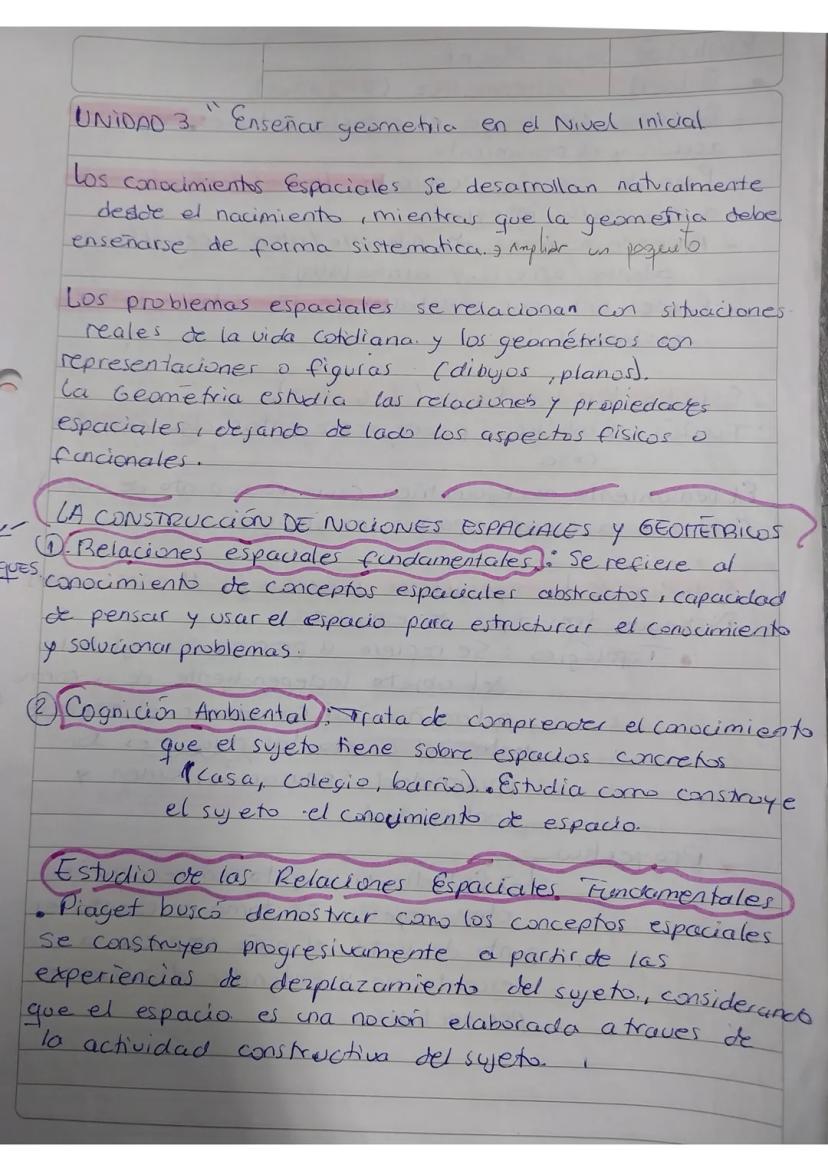 UNIDAD 3 " Enseñar geometria en el Nivel inicial
Los conocimientos Espaciales se desarrollan naturalmente
desde el nacimiento, mientras que la geometria debe
enseñarse de forma sistematica. → Ampliar un poquito
Los problemas espaciales se relacionan con situaciones
reales de la vida cotidiana. y los geométricos con
representaciones o figuras (dibujos, planos).
La Geometria estudia las relaciones y propiedades
espaciales, dejando de lado los aspectos fisicos o
funcionales.
LA CONSTRUCCIÓN DE NOCIONES ESPACIALES y GEOMÉTRICOS
① Relaciones espaciales fundamentales: Se refiere al
conocimiento de conceptos espaciales abstractos, capacidad
de pensar y usar el espacio para estructurar el conocimiento
y solucionar problemas.
② Cognición Ambiental: Trata de comprender el conocimiento
que el sujeto tiene sobre espacios concretos
(casa, colegio, barrio). Estudia como construye
el sujeto el conocimiento de espacio.
Estudio de las Relaciones Espaciales Fundamentales
• Piaget buscó demostrar como los conceptos espaciales
se construyen progresivamente a partir de las
experiencias de dezplazamiento del sujeto, considerando
que el espacio es una noción elaborada a traves de
la actividad constructiva del sujeto.